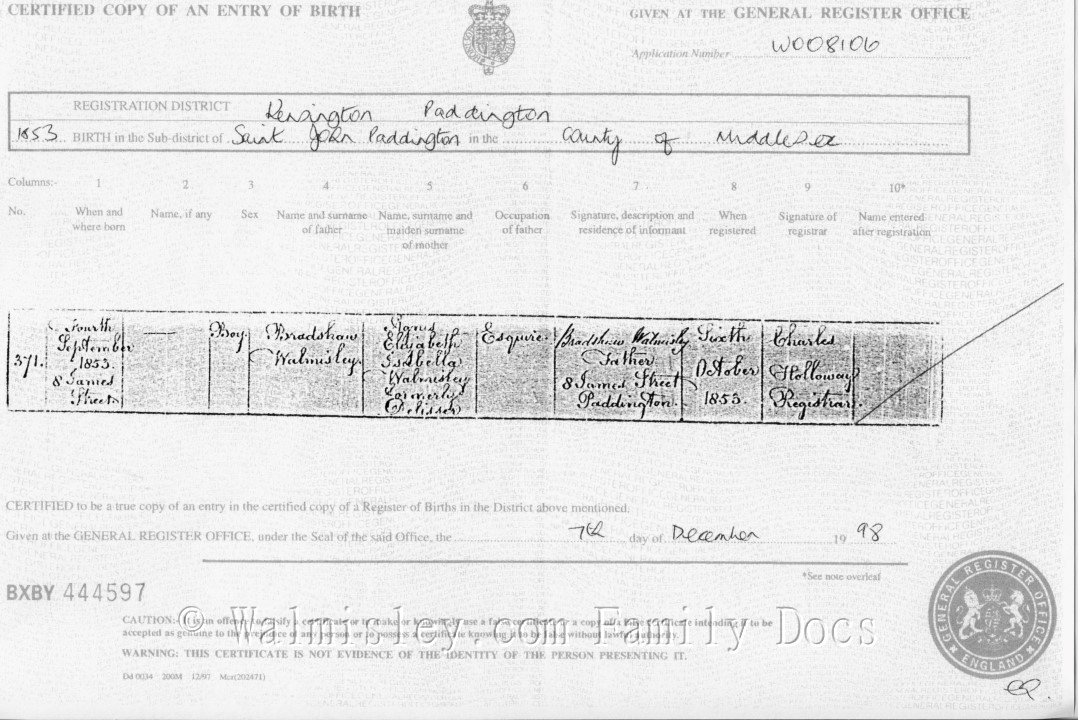 CERTIFIED COPY OF AN ENTRY OF BIRTH
GIVEN AT THE GENERAL REGISTER OFFICE
Application Number W008106
REGISTRATION DISTRICT Kensington Paddington
1853 BIRTH in the Sub-district of Saint John Paddington in the County of Middlesex
Columns:- 1 2 3 4 5 6 7 8 9 10*
No. When and where born Name, if any Sex Name and surname of father Name, surname and maiden surname of mother Occupation of father Signature, description and residence of informant When registered Signature of registrar Name entered after registration
371. Fourth September 1853. 8 James Street — Boy Bradshaw Walmisley Elizabeth Isabella Walmisley formerly Delisser Esquire Bradshaw Walmisley Father 8 James Street Paddington Sixth October 1853. Charles Holloway Registrar.
CERTIFIED to be a true copy of an entry in the certified copy of a Register of Births in the District above mentioned.
Given at the GENERAL REGISTER OFFICE, under the Seal of the said Office, the 7th day of December 19 98
*See note overleaf
BXBY 444597
CAUTION:- It is an offence to falsify a certificate or to make or knowingly use a false certificate or a copy of a false certificate intending it to be
accepted as genuine to the prejudice of any person or to possess a certificate knowing it to be false without lawful authority.
WARNING: THIS CERTIFICATE IS NOT EVIDENCE OF THE IDENTITY OF THE PERSON PRESENTING IT.
Dd 0034 200M 12/97 Mcr(202471)
© Walmisley.com Family Docs
GENERAL REGISTER OFFICE
ENGLAND